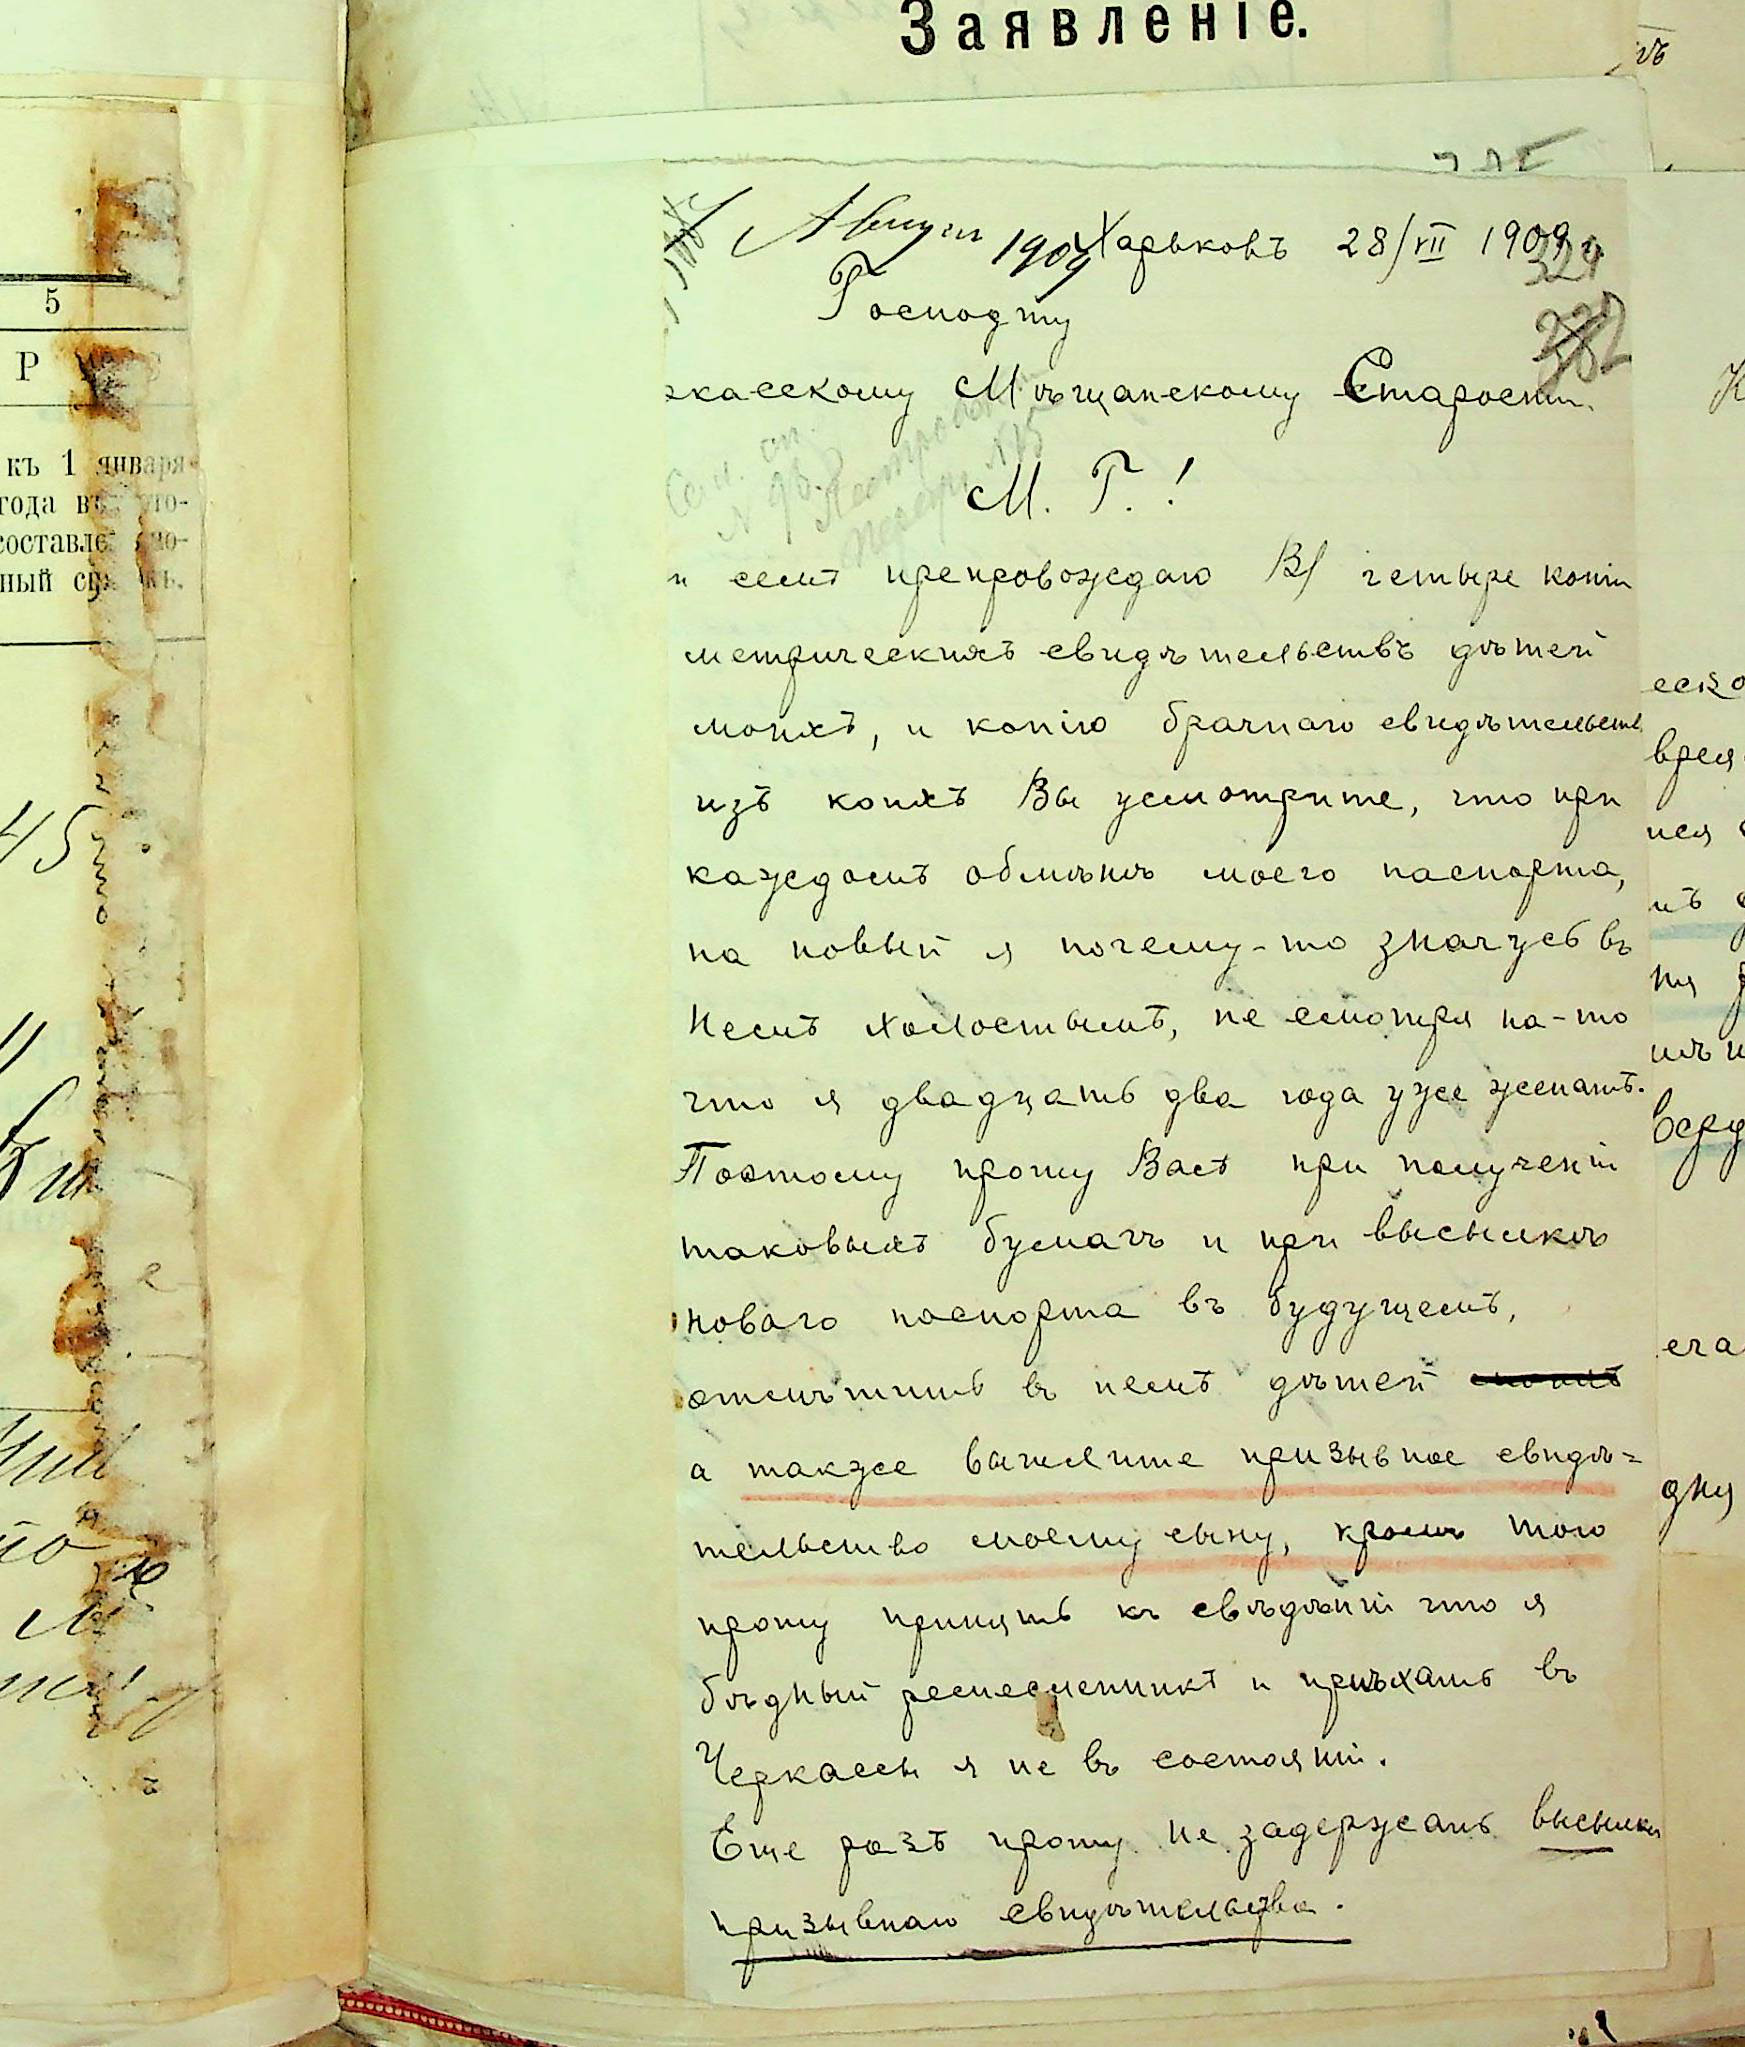 Заявленіе.
5
къ 1 января
года въ
составле
ный
45
Августа 1909 Харьковъ 28/VII 1909 г.
324
Господину
ркасскому Мѣщанскому Старостѣ.
М. Г.!
и семъ препровождаю В/ четыре копіи
метрическихъ свидѣтельствъ дѣтей
моихъ, и копію брачнаго свидѣтельств
изъ коихъ Вы усмотрите, что при
каждомъ обмѣнѣ моего паспорта,
на новый я почему-то значусь въ
немъ холостымъ, не смотря на-то
что я двадцать два года уже женатъ.
Поэтому прошу Васъ при полученіи
таковыхъ бумагъ и при высылкѣ
новаго паспорта въ будущемъ,
отмѣтить въ немъ дѣтей
а также вышлите призывное свидѣ=
тельство моему сыну, кромѣ того
прошу принять къ свѣдѣнію что я
бѣдный ремесленникъ и пріѣхать въ
Черкассы я не въ состояніи.
Еще разъ прошу не задержать высылки
призывнаго свидѣтельства.